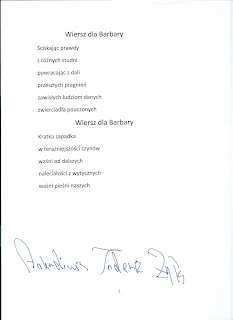 Wiersz dla Barbary
Ściskając prawdy
z różnych studni
powracając z dali
przeszłych pragnień
zawisłych ludziom danych
zwierciadła pouczonych
Wiersz dla Barbary
Kratka zapadka
w teraźniejszości czynów
waśni od dalszych
naleciałości z wytycznych
waśni pieśni naszych
1